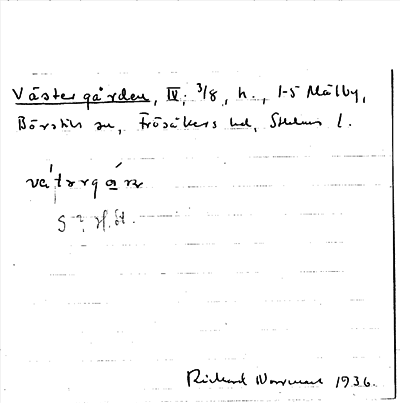 Västergården, IV, 3/8, h., 1-5 Mälby,
Börstils sn, Frösåkers hd, Sthlms l.
vä́tərgɑ̀ɳ
S?, H.St.
Rickard Norrman 1936.